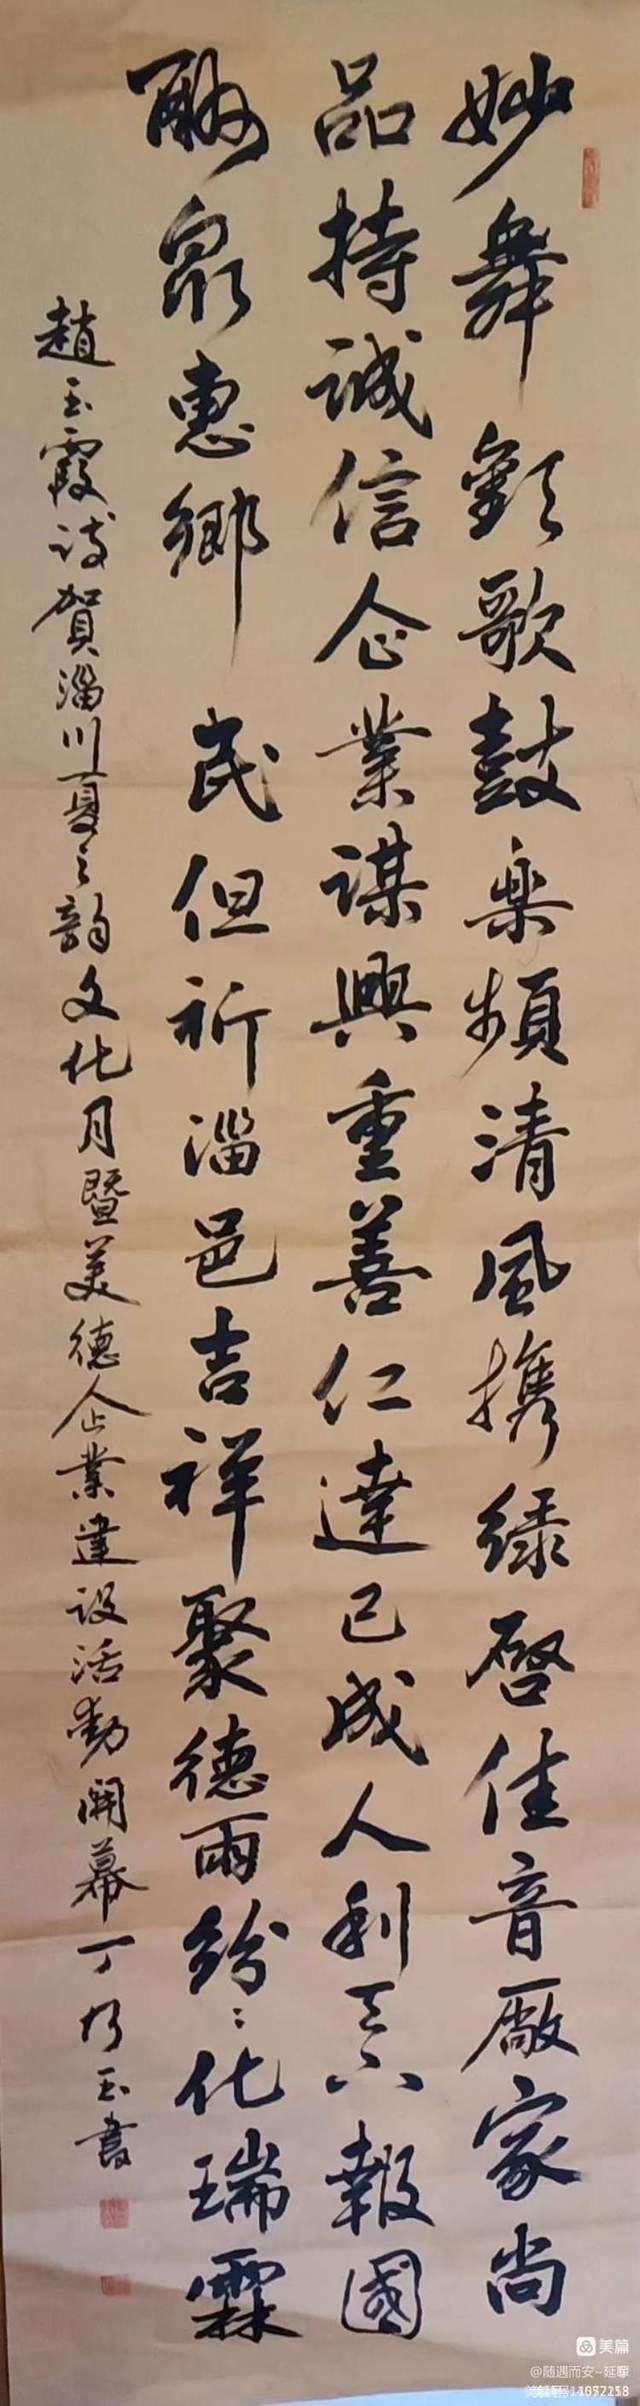 妙舞歡歌鼓樂頻清風携绿啓佳音廠家尚
品持誠信企業謀興重善仁達已成人利天下報國
酬衆惠鄉 民但祈淄邑吉祥聚德雨紛〻化瑞霖
趙玉霞诗賀淄川夏之韵文化月暨美德企業建设活動開幕丁
玉書
美篇
@随遇而安~延擊